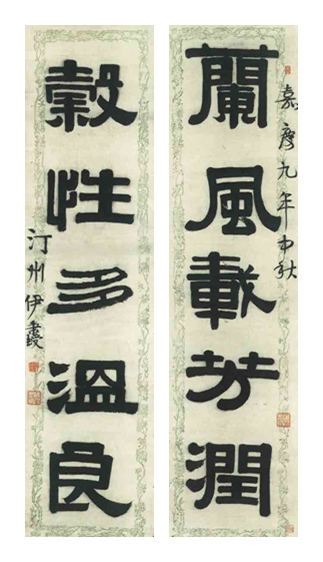 嘉慶九年中秋
蘭風載芳潤
穀性多溫良
汀州伊秉綬